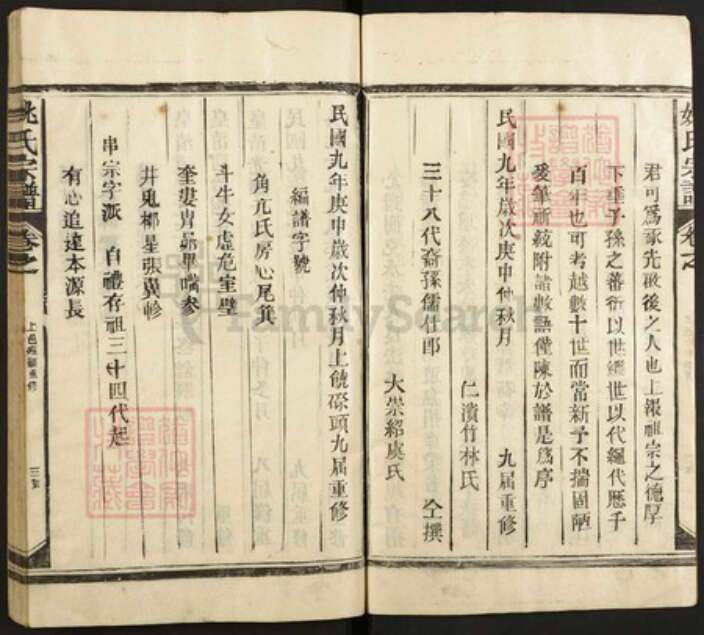 君可爲承先啟後之人也上報祖宗之德厚
下垂子孫之蕃衍以世繼世以代繩代歷千
百年也可考越數十世而常新予不揣固陋
爰筆所統附諸數語僅陳於譜是爲序
民國九年歲次庚申仲秋月 九届重修
仁濱竹林氏
三十八代裔孫儒仕郎 仝撰
大崇紹虞氏
姚氏宗譜 卷之
民國九年庚申歲次仲秋月上饒磜頭九届重修
編譜字號
角亢氐房心尾箕
斗牛女虛危室壁
奎婁胃昴畢嘴參
井鬼柳星張翼軫
串宗字派 自禮存祖三十四代起
有心追遠本源長
姚氏宗譜 卷之
FamilySearch